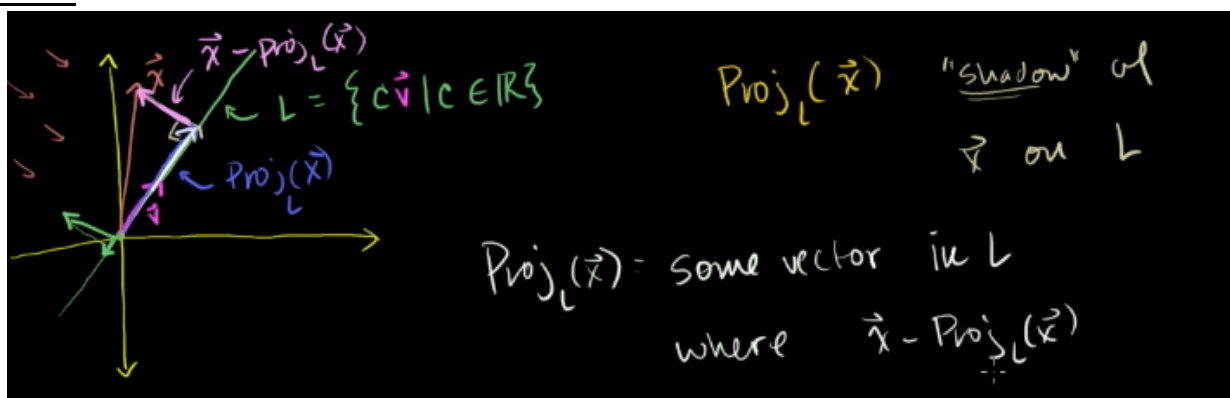 x⃗
x⃗ - Proj_L(x⃗)
L = {cv⃗ | c ∈ ℝ}
Proj_L(x⃗)
v⃗
Proj_L(x⃗) "shadow" of
x⃗ on L
Proj_L(x⃗) = some vector in L
where x⃗ - Proj_L(x⃗)